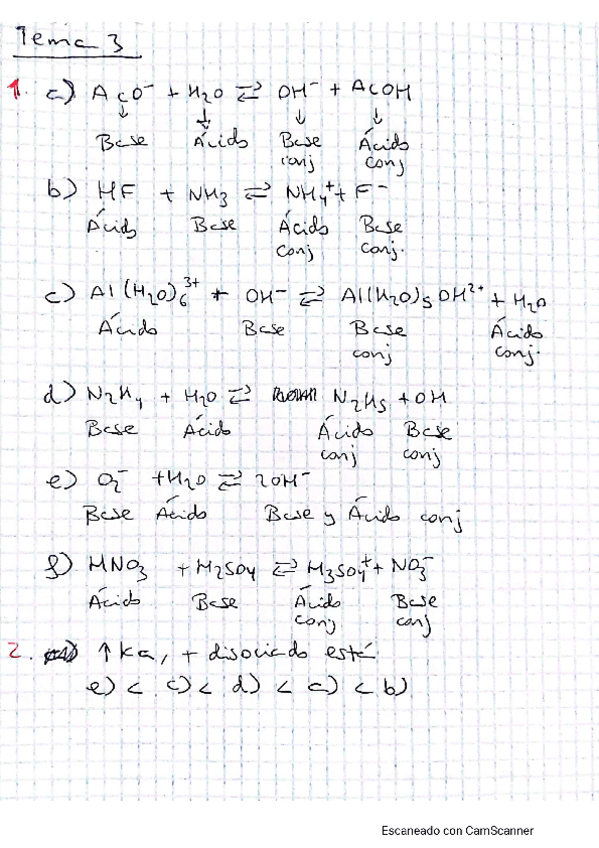 Tema 3
1. a) AcO⁻ + H₂O ⇌ OH⁻ + AcOH
↓ ↓ ↓ ↓
Base Ácido Base conj Ácido conj
b) HF + NH₃ ⇌ NH₄⁺ + F⁻
Ácido Base Ácido conj Base conj.
c) Al(H₂O)₆³⁺ + OH⁻ ⇌ Al(H₂O)₅OH²⁺ + H₂O
Ácido Base Base conj Ácido conj.
d) N₂H₄ + H₂O ⇌ N₂H₅ + OH
Base Ácido Ácido conj Base conj
e) O₂⁻ + H₂O ⇌ 2OH⁻
Base Ácido Base y Ácido conj
f) HNO₃ + H₂SO₄ ⇌ H₃SO₄⁺ + NO₃⁻
Ácido Base Ácido conj Base conj
2. ↑ka, + disociado está
e) < c) < d) < a) < b)
Escaneado con CamScanner